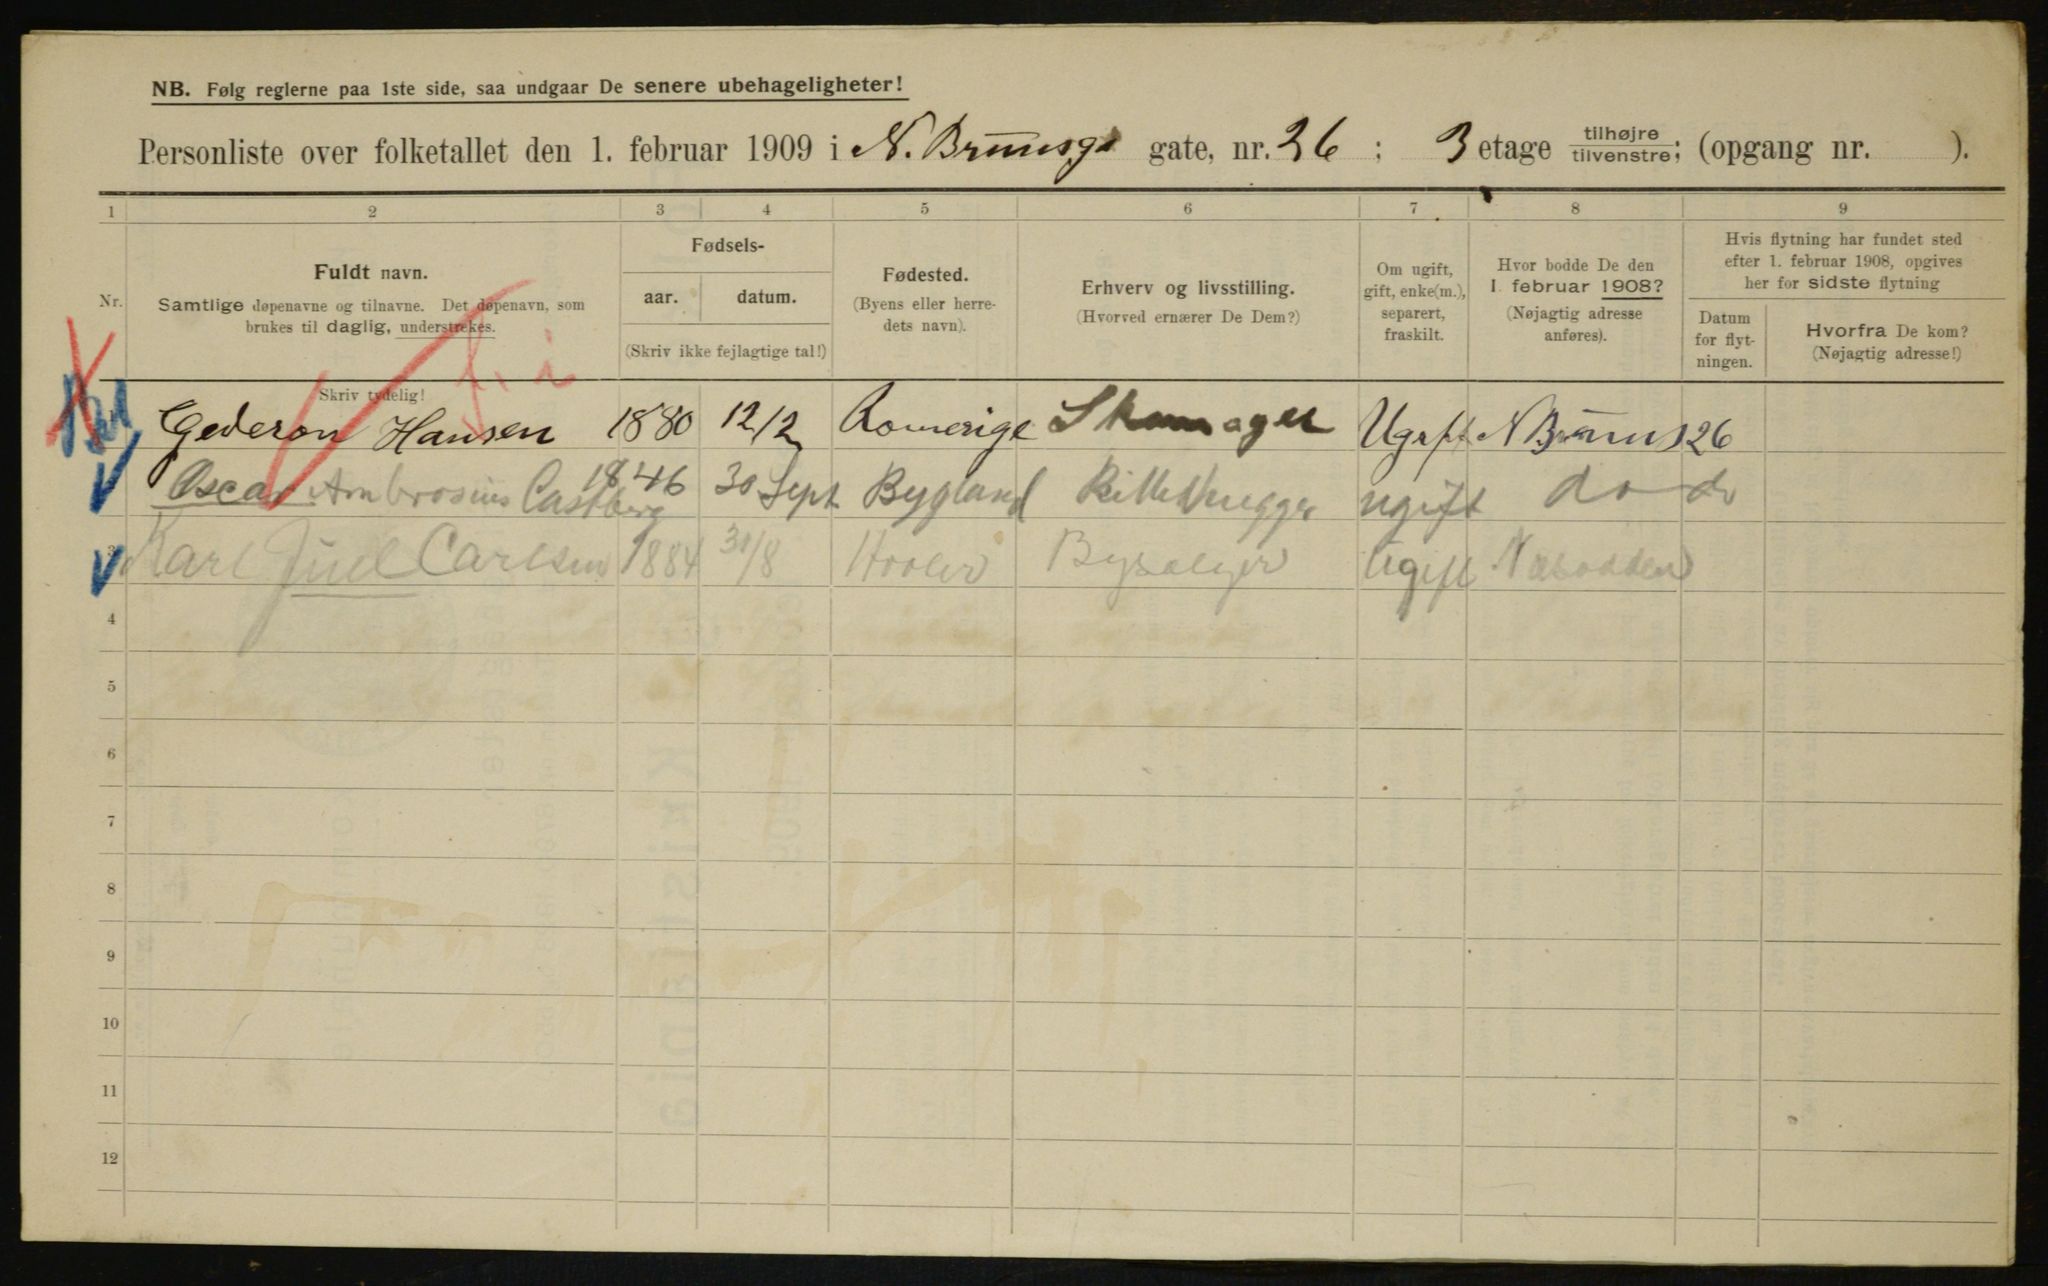 NB. Følg reglerne paa 1ste side, saa undgaar De senere ubehageligheter!
Personliste over folketallet den 1. februar 1909 i N. Brunsgt gate, nr. 26 ; 3 etage tilhøjre tilvenstre; (opgang nr. ).
1 2 3 4 5 6 7 8 9
Nr.
Fuldt navn.
Samtlige døpenavne og tilnavne. Det døpenavn, som
brukes til daglig, understrekes.
Skriv tydelig!
Fødsels-
aar. datum.
(Skriv ikke fejlagtige tal!)
Fødested.
(Byens eller herre-
dets navn).
Erhverv og livsstilling.
(Hvorved ernærer De Dem?)
Om ugift,
gift, enke(m.),
separert,
fraskilt.
Hvor bodde De den
1. februar 1908?
(Nøjagtig adresse
anføres).
Hvis flytning har fundet sted
efter 1. februar 1908, opgives
her for sidste flytning
Datum
for flyt-
ningen.
Hvorfra De kom?
(Nøjagtig adresse!)
f. i
Gederon Hansen 1880 12/2 Romerige Skomager Ugift N Bruns 26
Oscar Ambrosius Castberg 1846 30 Sept Bygland Billedhugger ugift do do
3 Karl Juel Carlsen 1884 31/8 Ugift Nesodden
4
5
6
7
8
9
10
11
12